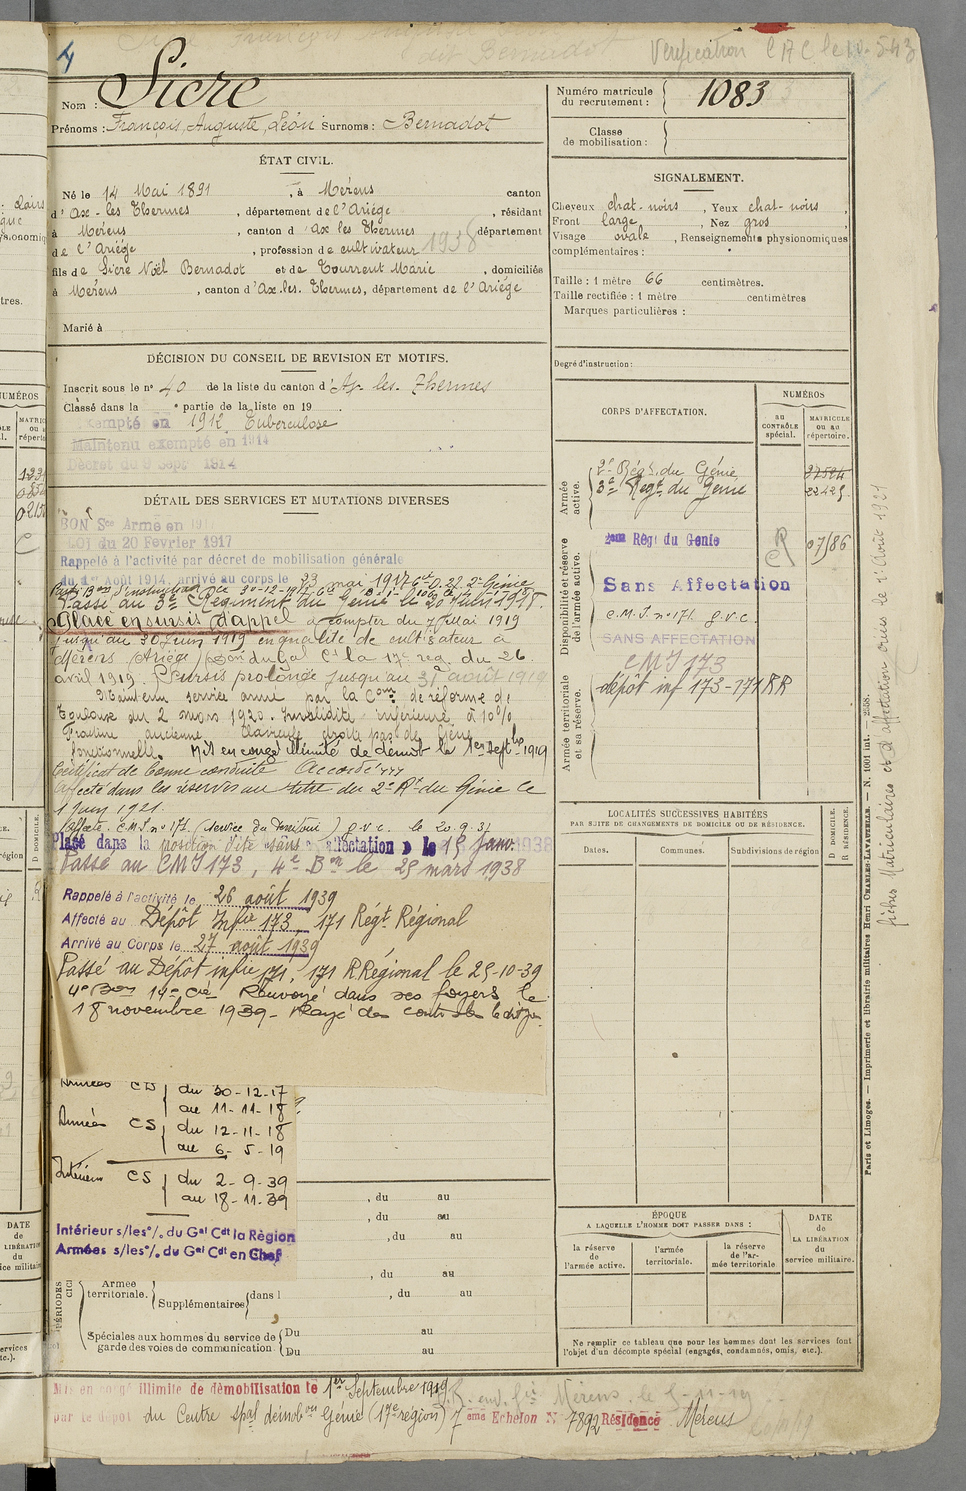 4
Vérification C M C le
Nom : Sicre
Prénoms : François, Auguste, Léon Surnoms : Bernadot
Numéro matricule
du recrutement : 1083
Classe
de mobilisation :
ÉTAT CIVIL.
Né le 14 Mai 1891, à Mérens canton
d'Ax-les Thermes, département de l'Ariège, résidant
à Mérens, canton d'Ax les Thermes département
de l'Ariège, profession de cultivateur 1938
fils de Sicre Noël Bernadot et de Tourrent Marie, domiciliés
à Mérens, canton d'Ax-les-Thermes, département de l'Ariège
Marié à
SIGNALEMENT.
Cheveux chat-noirs, Yeux chat-noirs,
Front large, Nez gros,
Visage ovale, Renseignements physionomiques
complémentaires :
Taille : 1 mètre 66 centimètres.
Taille rectifiée : 1 mètre centimètres
Marques particulières :
Degré d'instruction :
DÉCISION DU CONSEIL DE REVISION ET MOTIFS.
Inscrit sous le n° 40 de la liste du canton d'Ax-les-Thermes
Classé dans la e partie de la liste en 19 .
Exempté en 1912 Tuberculose
Maintenu exempté en 1914
Décret du 9 Sept 1914
DÉTAIL DES SERVICES ET MUTATIONS DIVERSES
BON Sce Armé en 1917
LOI du 20 Février 1917
Rappelé à l'activité par décret de mobilisation générale
du 1er Août 1914, arrivé au corps le 23 mai 1917
Passé au 3e Régiment du Génie le 20 Juin 1918.
Placé en sursis d'appel à compter du 7 Mai 1919
jusqu'au 30 Juin 1919 en qualité de cultivateur à
Mérens (Ariège) du Gal Ct la 17e rég. du 26
avril 1919. Sursis prolongé jusqu'au 31 août 1919
Maintenu service armé par la Com de réforme de
Toulouse du 2 mars 1920. Invalidité inférieure à 10%
Fracture ancienne clavicule droite pas de gêne
fonctionnelle. Mis en congé illimité de démob le 1er Septbre 1919
Certificat de bonne conduite Accordé
Affecté dans les réserves au titre du 2e Rt du Génie le
1 Juin 1921.
Affecté C.M.I. n° 171 (Service du Territoire) g.v.c. le 20.9.31
Placé dans la position dite sans affectation le 15 Janv. 1938
Passé au CMI 173, 4e Bon le 25 mars 1938
Rappelé à l'activité le 26 août 1939
Affecté au Dépôt Infie 173, 171 Régt Régional
Arrivé au Corps le 27 août 1939
Passé au Dépôt infie 171, 171 R Régional le 25-10-39
4e Bon 14e Cie Renvoyé dans ses foyers le
18 novembre 1939 - Rayé des contrôles le dit jour
Armées CD du 30-12-17
au 11-11-18
Armées CS du 12-11-18
au 6-5-19
Intérieur CS du 2-9-39
au 18-11-39
Intérieur s/les°/. du Gal Cdt la Région
Armées s/les°/. du Gal Cdt en Chef
, du au
, du au
, du au
, du au
Armée
territoriale.
Supplémentaires
dans l , du au
Spéciales aux hommes du service de
garde des voies de communication.
Du au
Du au
CORPS D'AFFECTATION.
NUMÉROS
au
CONTRÔLE
spécial.
MATRICULE
ou au
répertoire.
Armée
active.
2e Régt du Génie
3e Régt du Génie 22425
Disponibilité et réserve
de l'armée active.
2ème Régt du Génie 07186
Sans Affectation
C.M.I. n° 171. g.v.c.
SANS AFFECTATION
Armée territoriale
et sa réserve.
CMI 173
dépôt inf 173-171 RR
LOCALITÉS SUCCESSIVES HABITÉES
PAR SUITE DE CHANGEMENTS DE DOMICILE OU DE RÉSIDENCE.
Dates.
Communes.
Subdivisions de région
D DOMICILE.
R RÉSIDENCE.
ÉPOQUE
A LAQUELLE L'HOMME DOIT PASSER DANS :
la réserve
de
l'armée active.
l'armée
territoriale.
la réserve
de l'ar-
mée territoriale
DATE
de
LA LIBÉRATION
du
service militaire.
Ne remplir ce tableau que pour les hommes dont les services font
l'objet d'un décompte spécial (engagés, condamnés, omis, etc.).
Paris et Limoges. — Imprimerie et librairie militaires Henri CHARLES-LAVAUZELLE. — N. 1001 int. — 2558.
fiches Matriculaires et d'affectation créées le 1er Août 1921
Mis en congé illimité de démobilisation le 1er Septembre 1919
par le dépôt du Centre spal démobon Génie (17e région) 7 eme Echelon N° 7892 Résidence Mérens